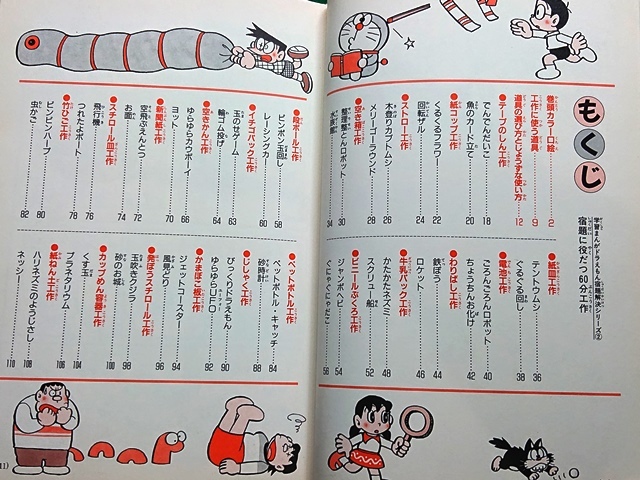 もくじ
学習まんがドラえもん宿題解決シリーズ②
宿題に役だつ60分工作
巻頭カラー口絵……2
工作に使う道具……9
道具の選び方とじょうずな使い方……12
●テープのしん工作
でんでんだいこ……18
魚のカード立て……20
●紙コップ工作
くるくるフラワー……22
回転ザル……24
●ストロー工作
木登りカブトムシ……26
メリーゴーラウンド……28
●空き箱工作
整理整とんロボット……30
水族館……34
●紙皿工作
テントウムシ……36
ぐるぐる回し……38
●電池工作
ごろんごろんロボット……40
ちょうちんお化け……42
●わりばし工作
鉄ぽう……44
ロケット……46
●牛乳パック工作
かたかたネズミ……48
スクリュー船……52
●ビニールぶくろ工作
ジャンボヘビ……54
ぐにゃぐにゃだこ……56
●段ボール工作
ピンポン玉回し……58
レーシングカー……60
●イチゴパック工作
玉のせゲーム……63
輪ゴム投げ……64
●空きかん工作
ゆらゆらカウボーイ……66
ヨット……70
●新聞紙工作
空飛ぶえんとつ……72
お面……74
●スチロール皿工作
飛行機……76
つれたよボート……78
●竹ひご工作
ピンピンハープ……80
虫かご……82
●ペットボトル工作
ペットボトル・キャッチ……84
砂時計……88
●じしゃく工作
びっくりドラえもん……90
ゆらゆらUFO……92
●かまぼこ板工作
ジェットコースター……94
風見どり……96
●発ぽうスチロール工作
玉吹きクジラ……98
砂のお城……100
●カップめん容器工作
くす玉……104
プラネタリウム……106
●紙ねん土工作
ハリネズミのようじさし……108
ネッシー……110